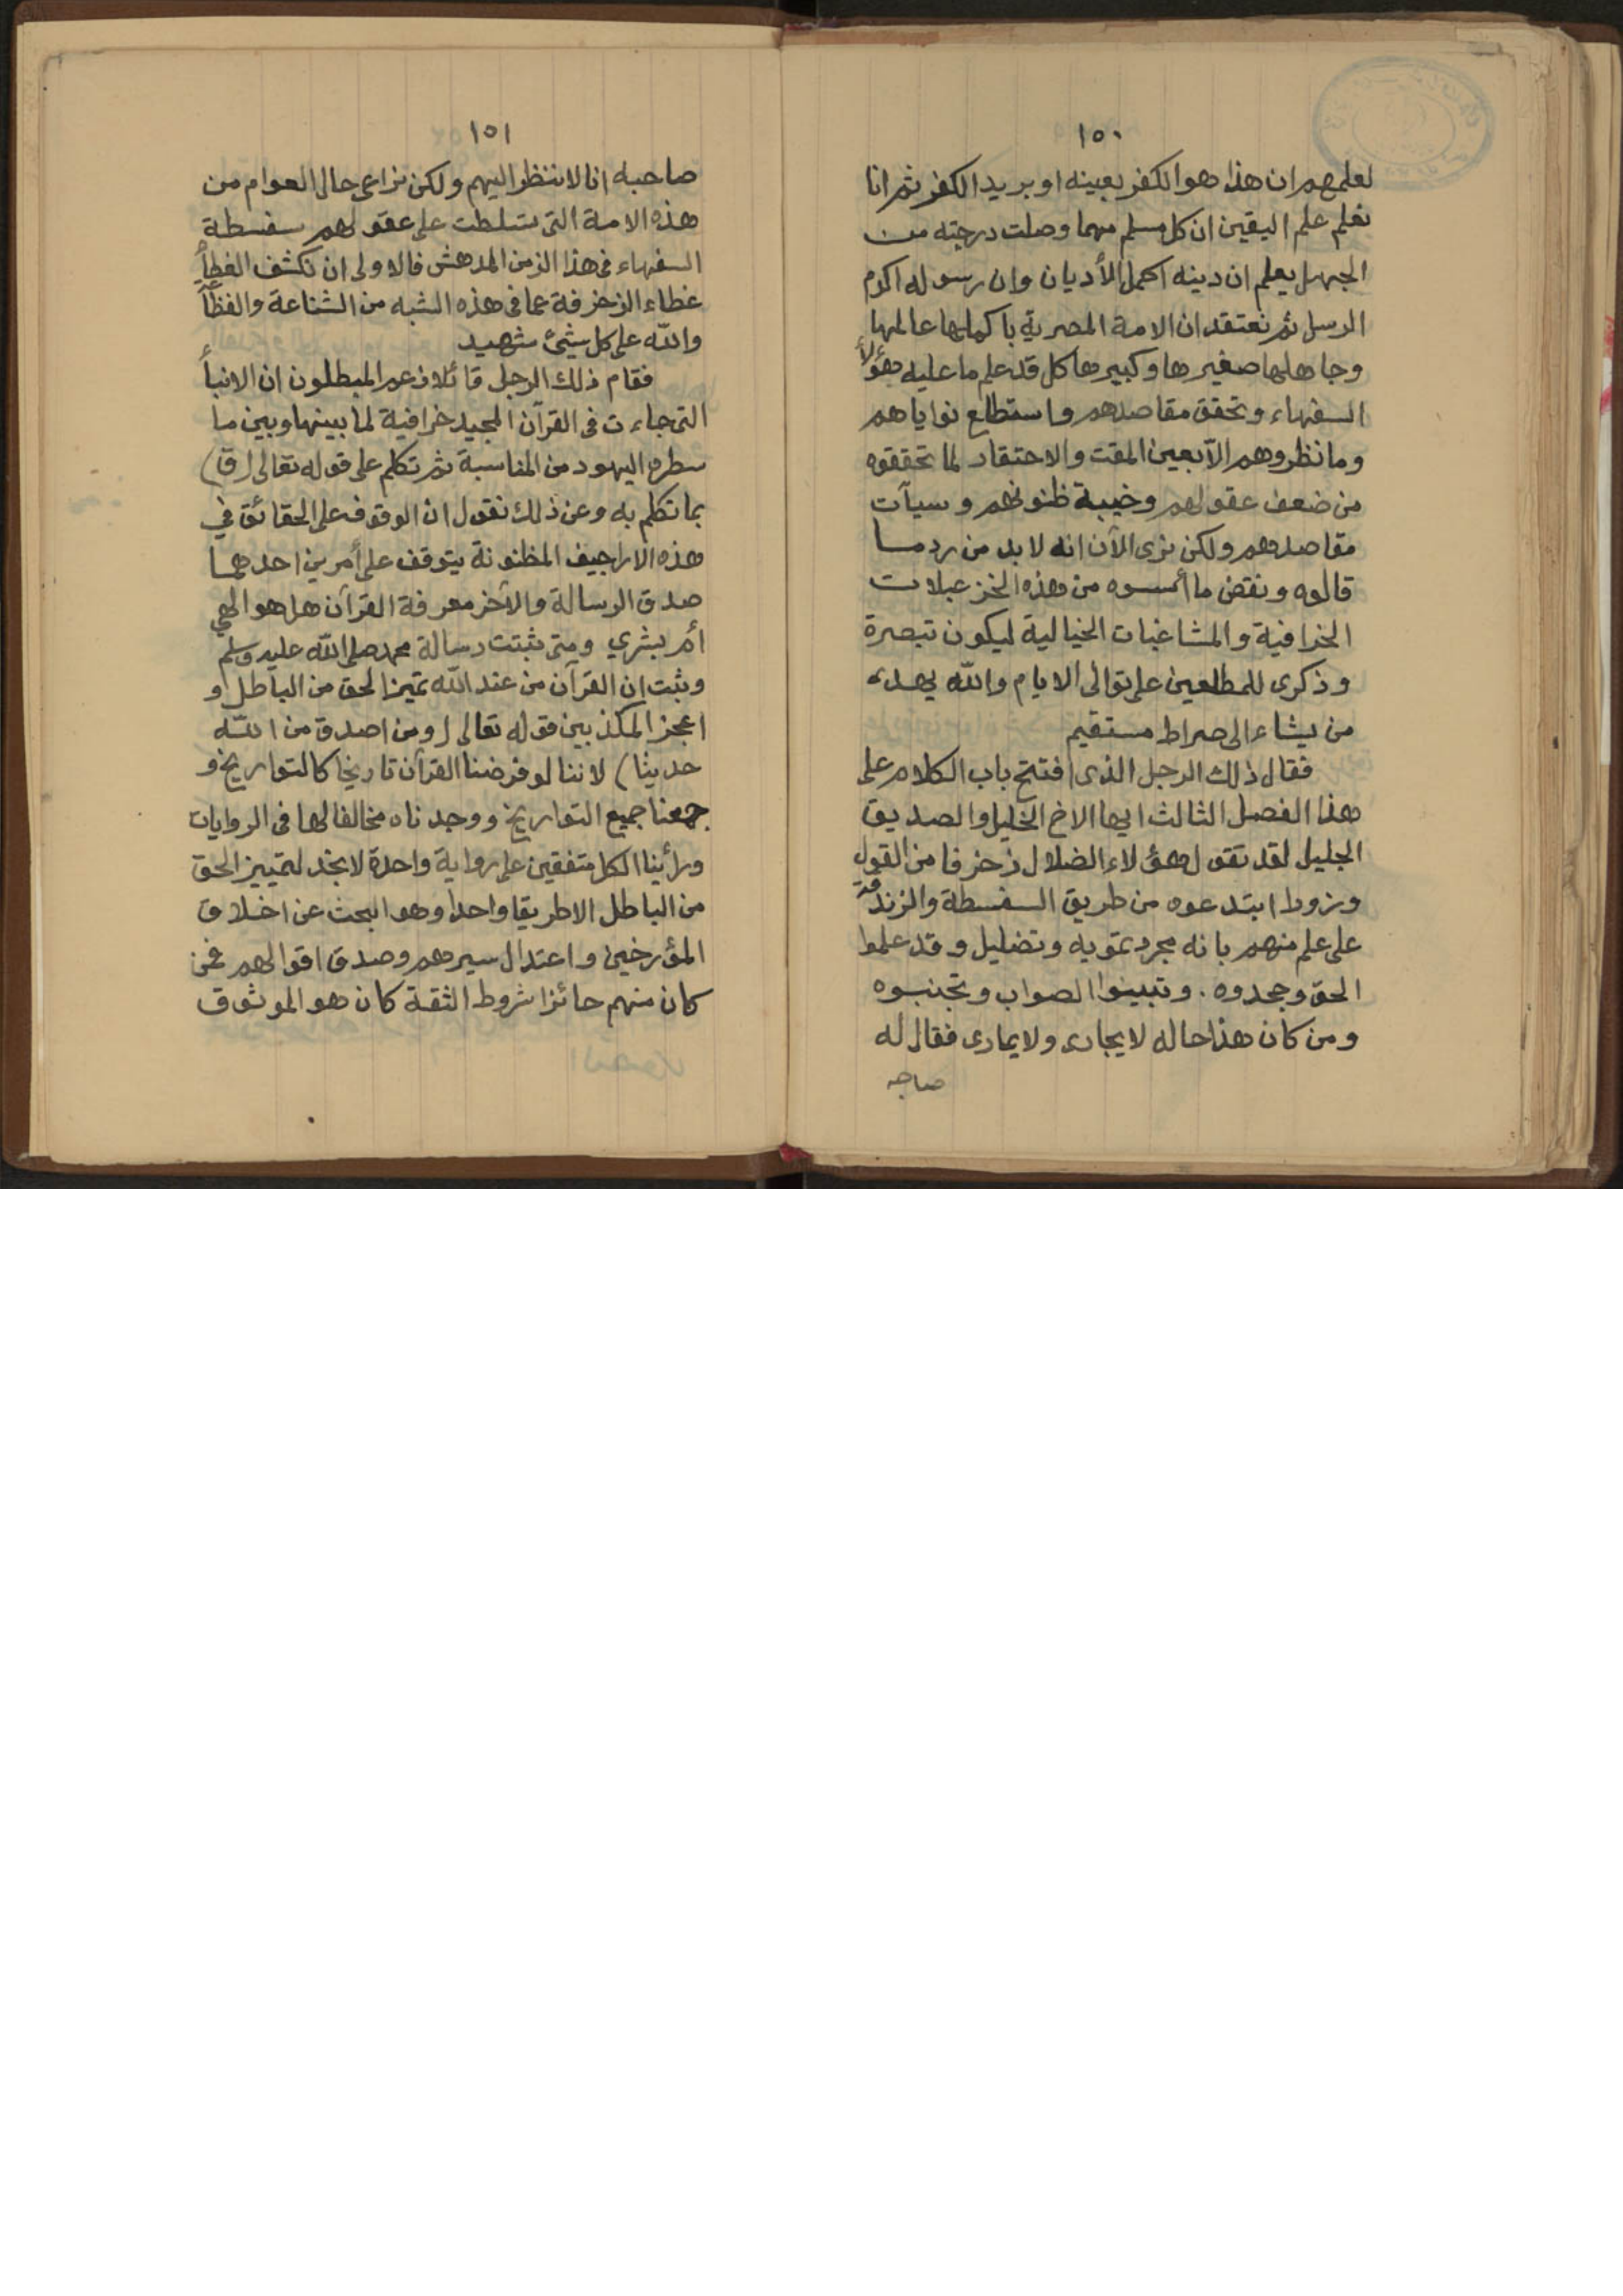 ١٥٠
لعلمهم ان هذا هو الكفر بعينه او بريد الكفر ثم انا
نعلم علم اليقين ان كل مسلم مهما وصلت درجته من
الجهل يعلم ان دينه اكمل الأديان وان رسوله اكرم
الرسل ثم نعتقد ان الامة المصرية باكملها عالمها
وجاهلها صغيرها وكبيرها كل قد علم ما عليه هؤلاء
السفهاء وتحقق مقاصدهم واستطلع نواياهم
وما نظروهم الا بعين المقت والاحتقار لما تحققوه
من ضعف عقولهم وخيبة ظنونهم وسيآت
مقاصدهم ولكن نرى الآن انه لا بد من رد ما
قالوه ونقض ما أسسوه من هذه الخزعبلات
الخرافية والمشاغبات الخيالية ليكون تبصرة
وذكرى للمطلعين على توالى الايام والله يهدى
من يشاء الى صراط مستقيم
فقال ذلك الرجل الذى افتتح باب الكلام على
هذا الفصل الثالث ايها الاخ الخليل والصديق
الجليل لقد تقول هؤلاء الضلال زخرفا من القول
وزورا ابتدعوه من طريق السفسطة والزندقة
على علم منهم بانه مجرد تمويه وتضليل وقد علموا
الحق وجحدوه . وتبينوا الصواب وتجنبوه
ومن كان هذا حاله لا يجارى ولا يمارى فقال له
صاحبه
١٥١
صاحبه انا لا ننظر اليهم ولكن نراعى حال العوام من
هذه الامة التى تسلطت على عقولهم سفسطة
السفهاء فى هذا الزمن المدهش فالاولى ان نكشف الغطأ
غطاء الزخرفة عما فى هذه الشبه من الشناعة والفظأ
والله على كل شيئ شهيد
فقام ذلك الرجل قائلا زعم المبطلون ان الانبأ
التى جاءت فى القرآن المجيد خرافية لما بينها وبين ما
سطره اليهود من المناسبة ثم تكلم على قوله تعالى (ق)
بما تكلم به وعن ذلك نقول ان الوقوف على الحقائق في
هذه الاراجيف المظنونة يتوقف على أمرين احدهما
صدق الرسالة والآخر معرفة القرآن هل هو الهي
أم بشري ومتى ثبتت رسالة محمد صلى الله عليه وسلم
وثبت ان القرآن من عند الله تميز الحق من الباطل و
اعجز المكذبين قوله تعالى (ومن اصدق من الله
حديثا) لاننا لو فرضنا القرآن تاريخا كالتواريخ و
جمعنا جميع التواريخ ووجدناه مخالفا لها فى الروايات
ورأينا الكل متفقين على رواية واحدة لا نجد لتمييز الحق
من الباطل الا طريقا واحدا وهو البحث عن اخلاق
المؤرخين واعتدال سيرهم وصدق اقوالهم فمن
كان منهم حائزا شروط الثقة كان هو الموثوق